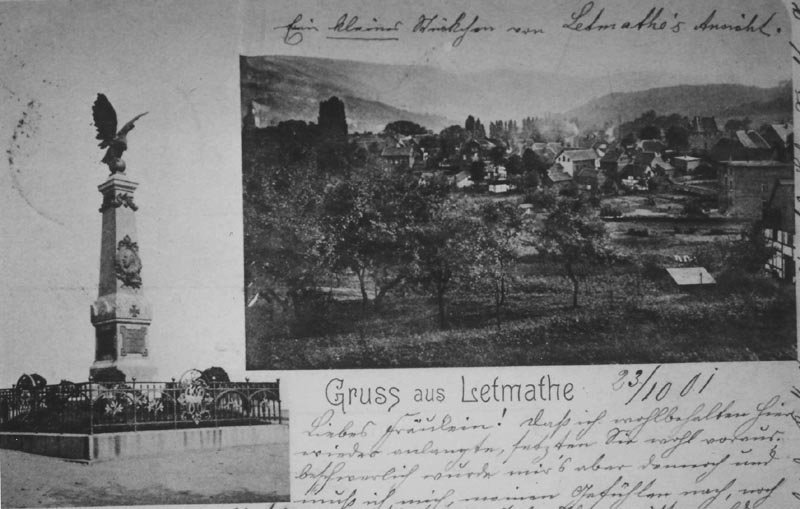 Ein kleines Stückchen von Letmathe's Ansicht.
Gruss aus Letmathe
23/10 01
Liebes Fräulein! Daß ich wohlbehalten hier
wieder anlangte, setzten Sie wohl voraus.
beschwerlich wurde mir's aber dennoch und
muß ich, mich, meinen Gefühlen nach, noch